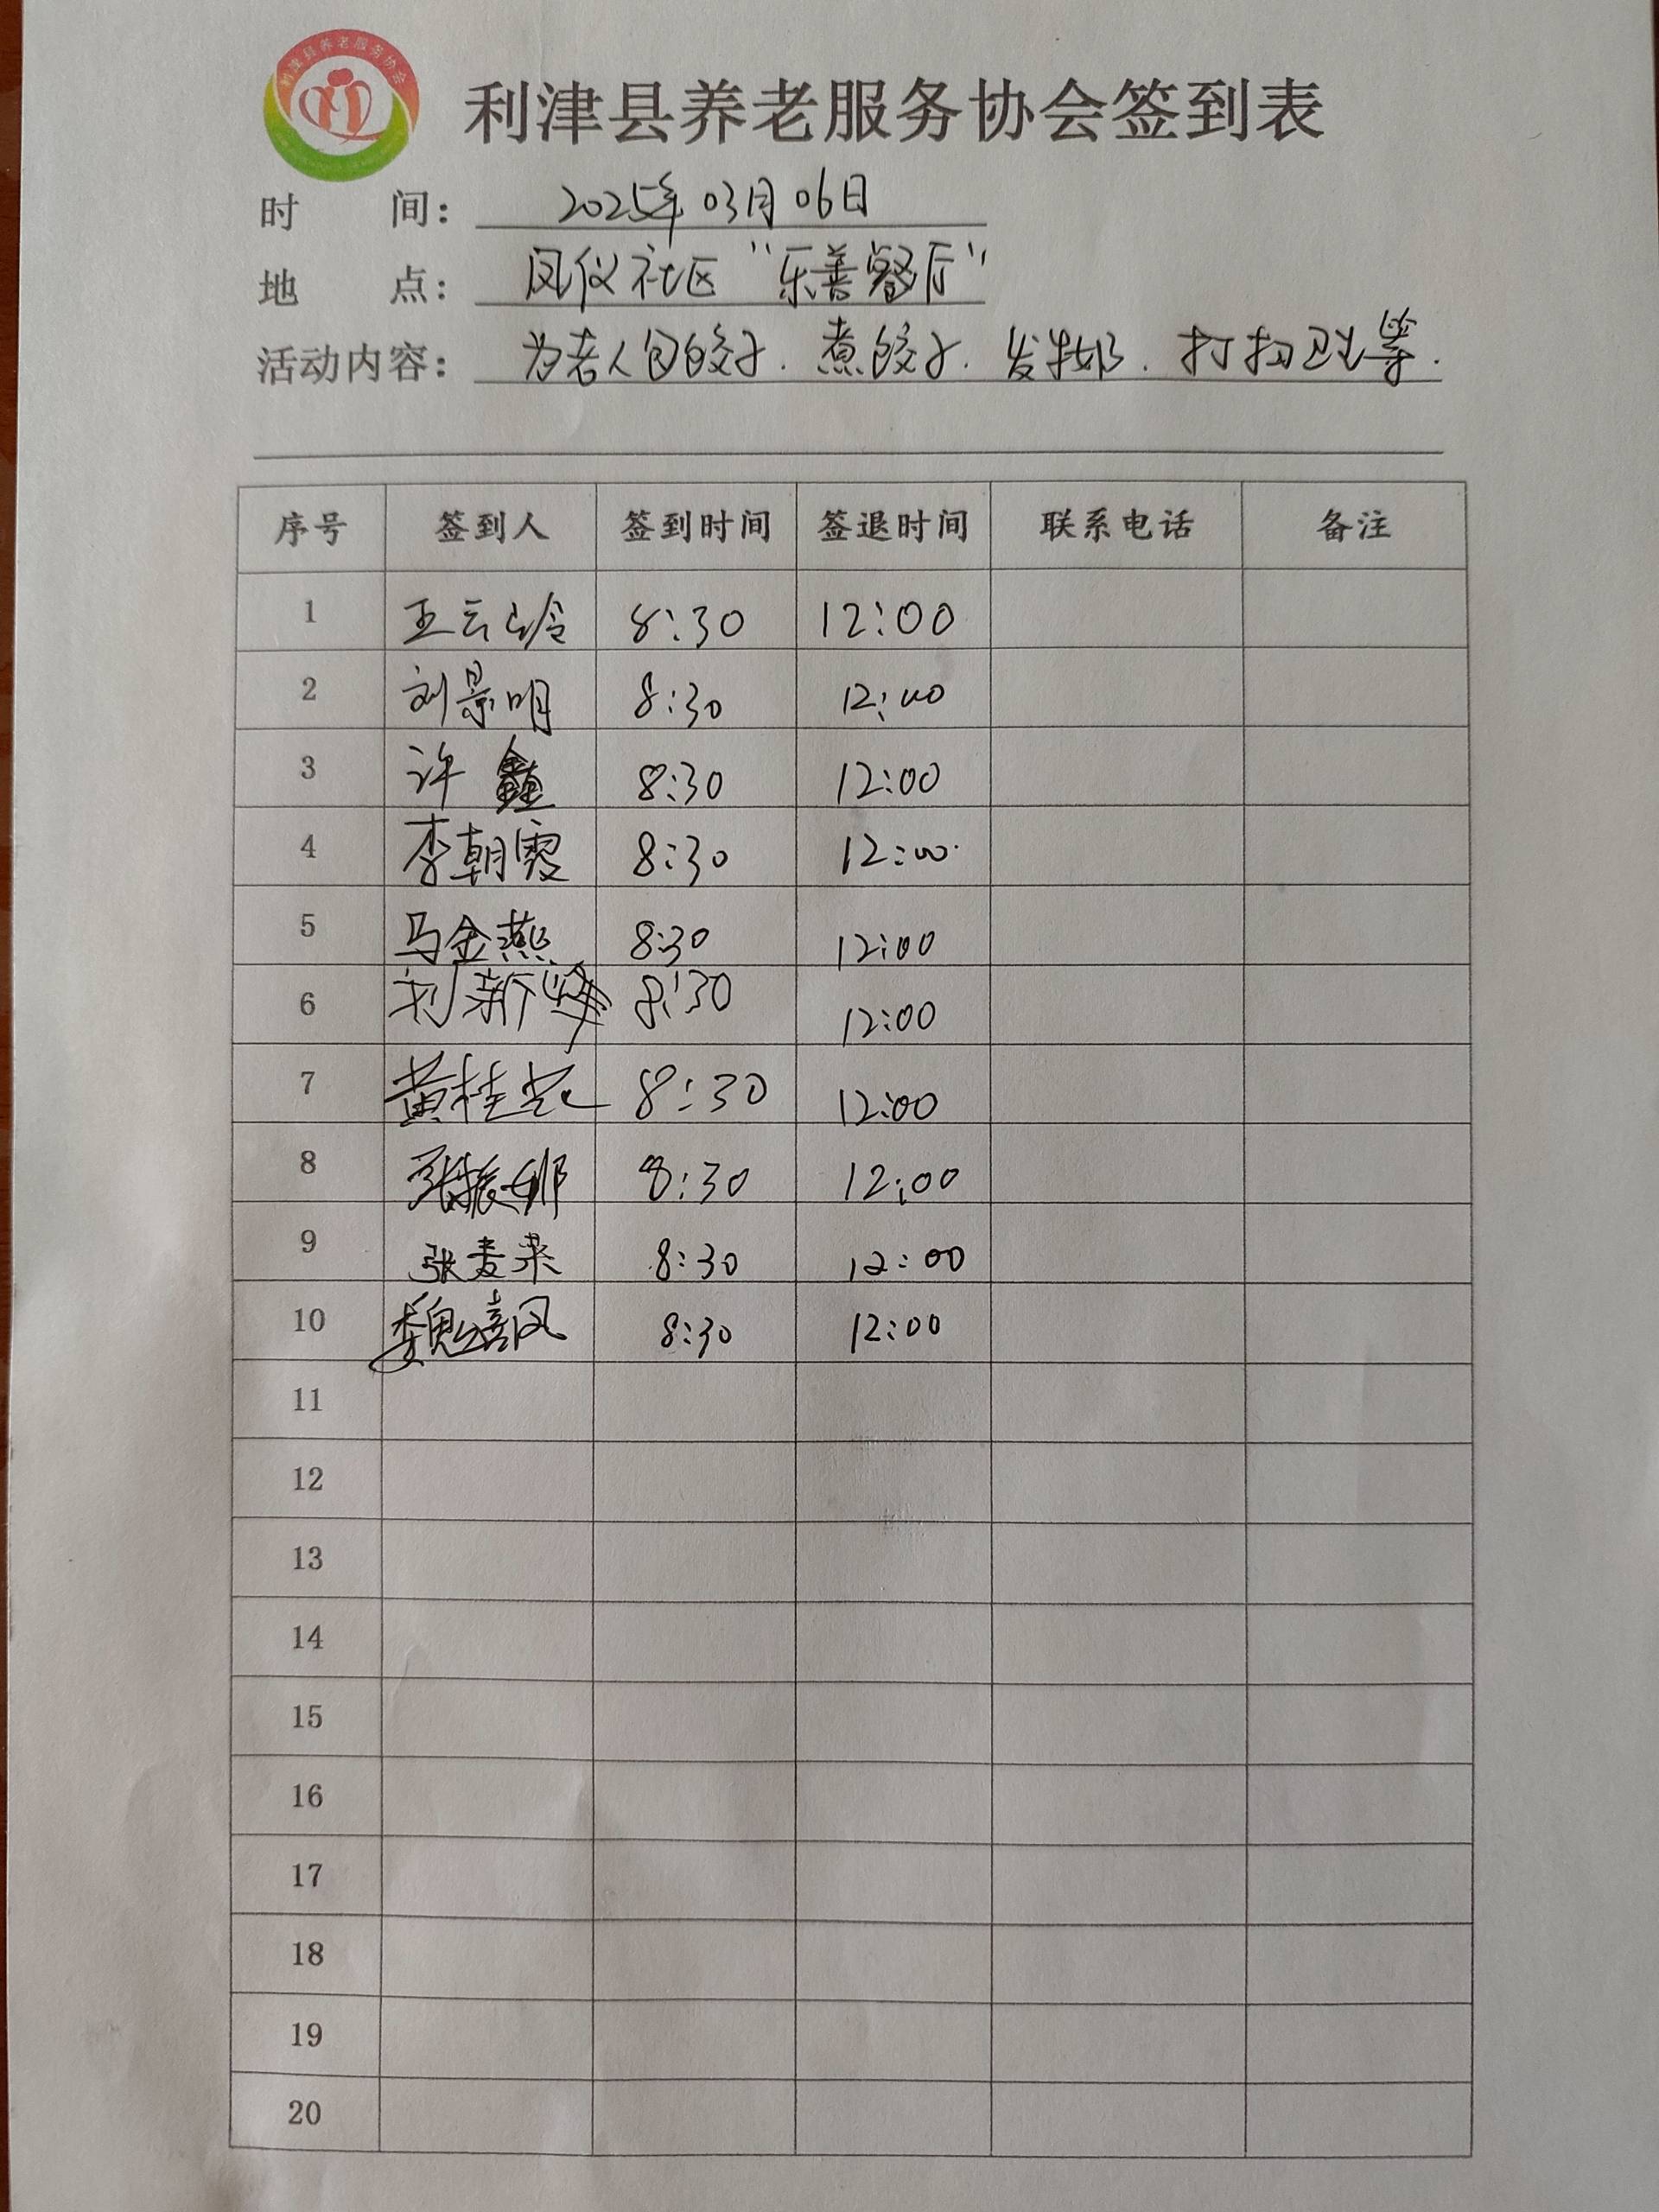 利津县养老服务协会
利津县养老服务协会签到表
时 间: 2025年03月06日
地 点: 凤仪社区“乐善餐厅”
活动内容: 为老人包饺子.煮饺子.发牛奶.打扫卫生等.
序号 签到人 签到时间 签退时间 联系电话 备注
1 王云玲 8:30 12:00
2 刘景明 8:30 12:00
3 许鑫 8:30 12:00
4 李朝霞 8:30 12:00
5 马金燕 8:30 12:00
6 刘新峰 8:30 12:00
7 黄桂花 8:30 12:00
8 张振娜 8:30 12:00
9 张麦荣 8:30 12:00
10 魏喜凤 8:30 12:00
11
12
13
14
15
16
17
18
19
20